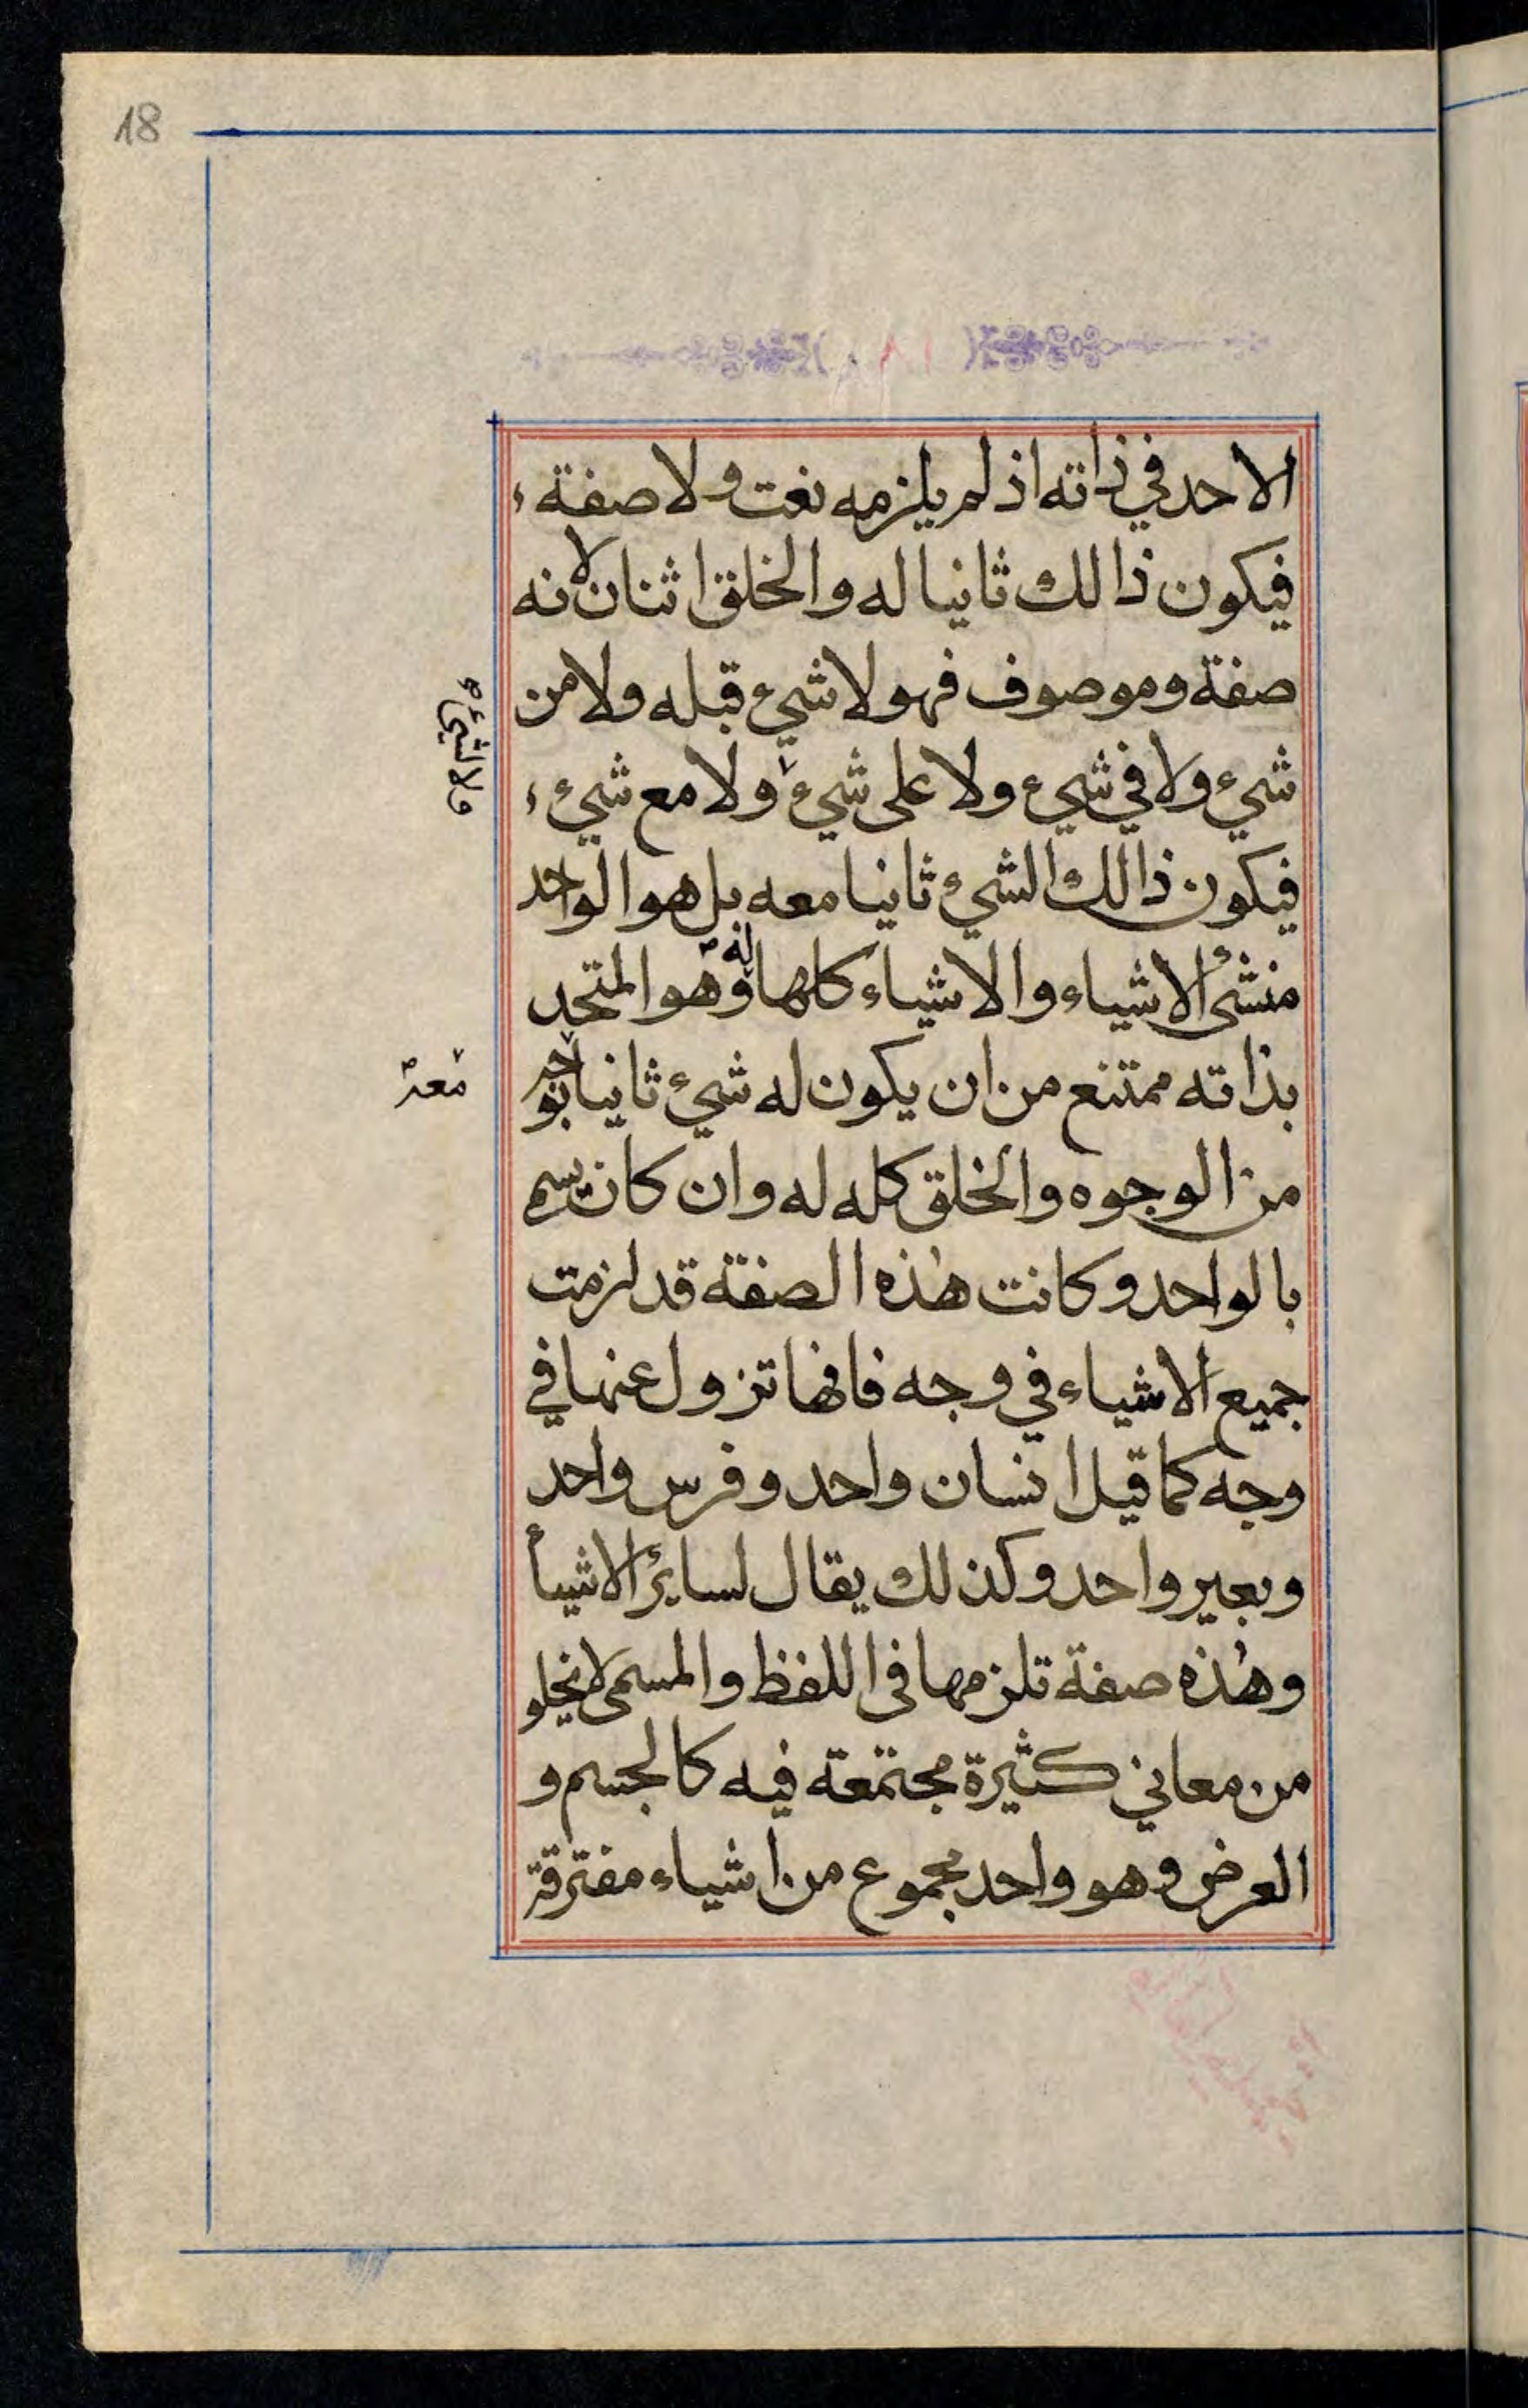 18
الاحد في ذاته اذ لم يلزمه نعت ولا صفة،
فيكون ذالك ثانيا له والخلق اثنان لانه
صفة وموصوف فهو لا شيء قبله ولا من
شيء ولا في شيء ولا على شيء ولا مع شيء،
ولا لشيء
فيكون ذالك الشيء ثانيا معه بل هو الواحد
منشئ الاشياء والاشياء كلها له وهو المتحد
بذاته ممتنع من ان يكون له شيء ثانيا بوجه
معه
من الوجوه والخلق كله له وان كان يسم
بالواحد وكانت هٰذه الصفة قد لزمت
جميع الاشياء في وجه فانها تزول عنها في
وجه كما قيل انسان واحد وفرس واحد
وبعير واحد وكذلك يقال لسائر الاشيأ
وهٰذه صفة تلزمها فى اللفظ والمسمى لا يخلو
من معاني كثيرة مجتمعة فيه كالجسم و
العرض وهو واحد مجموع من اشياء مفترقة